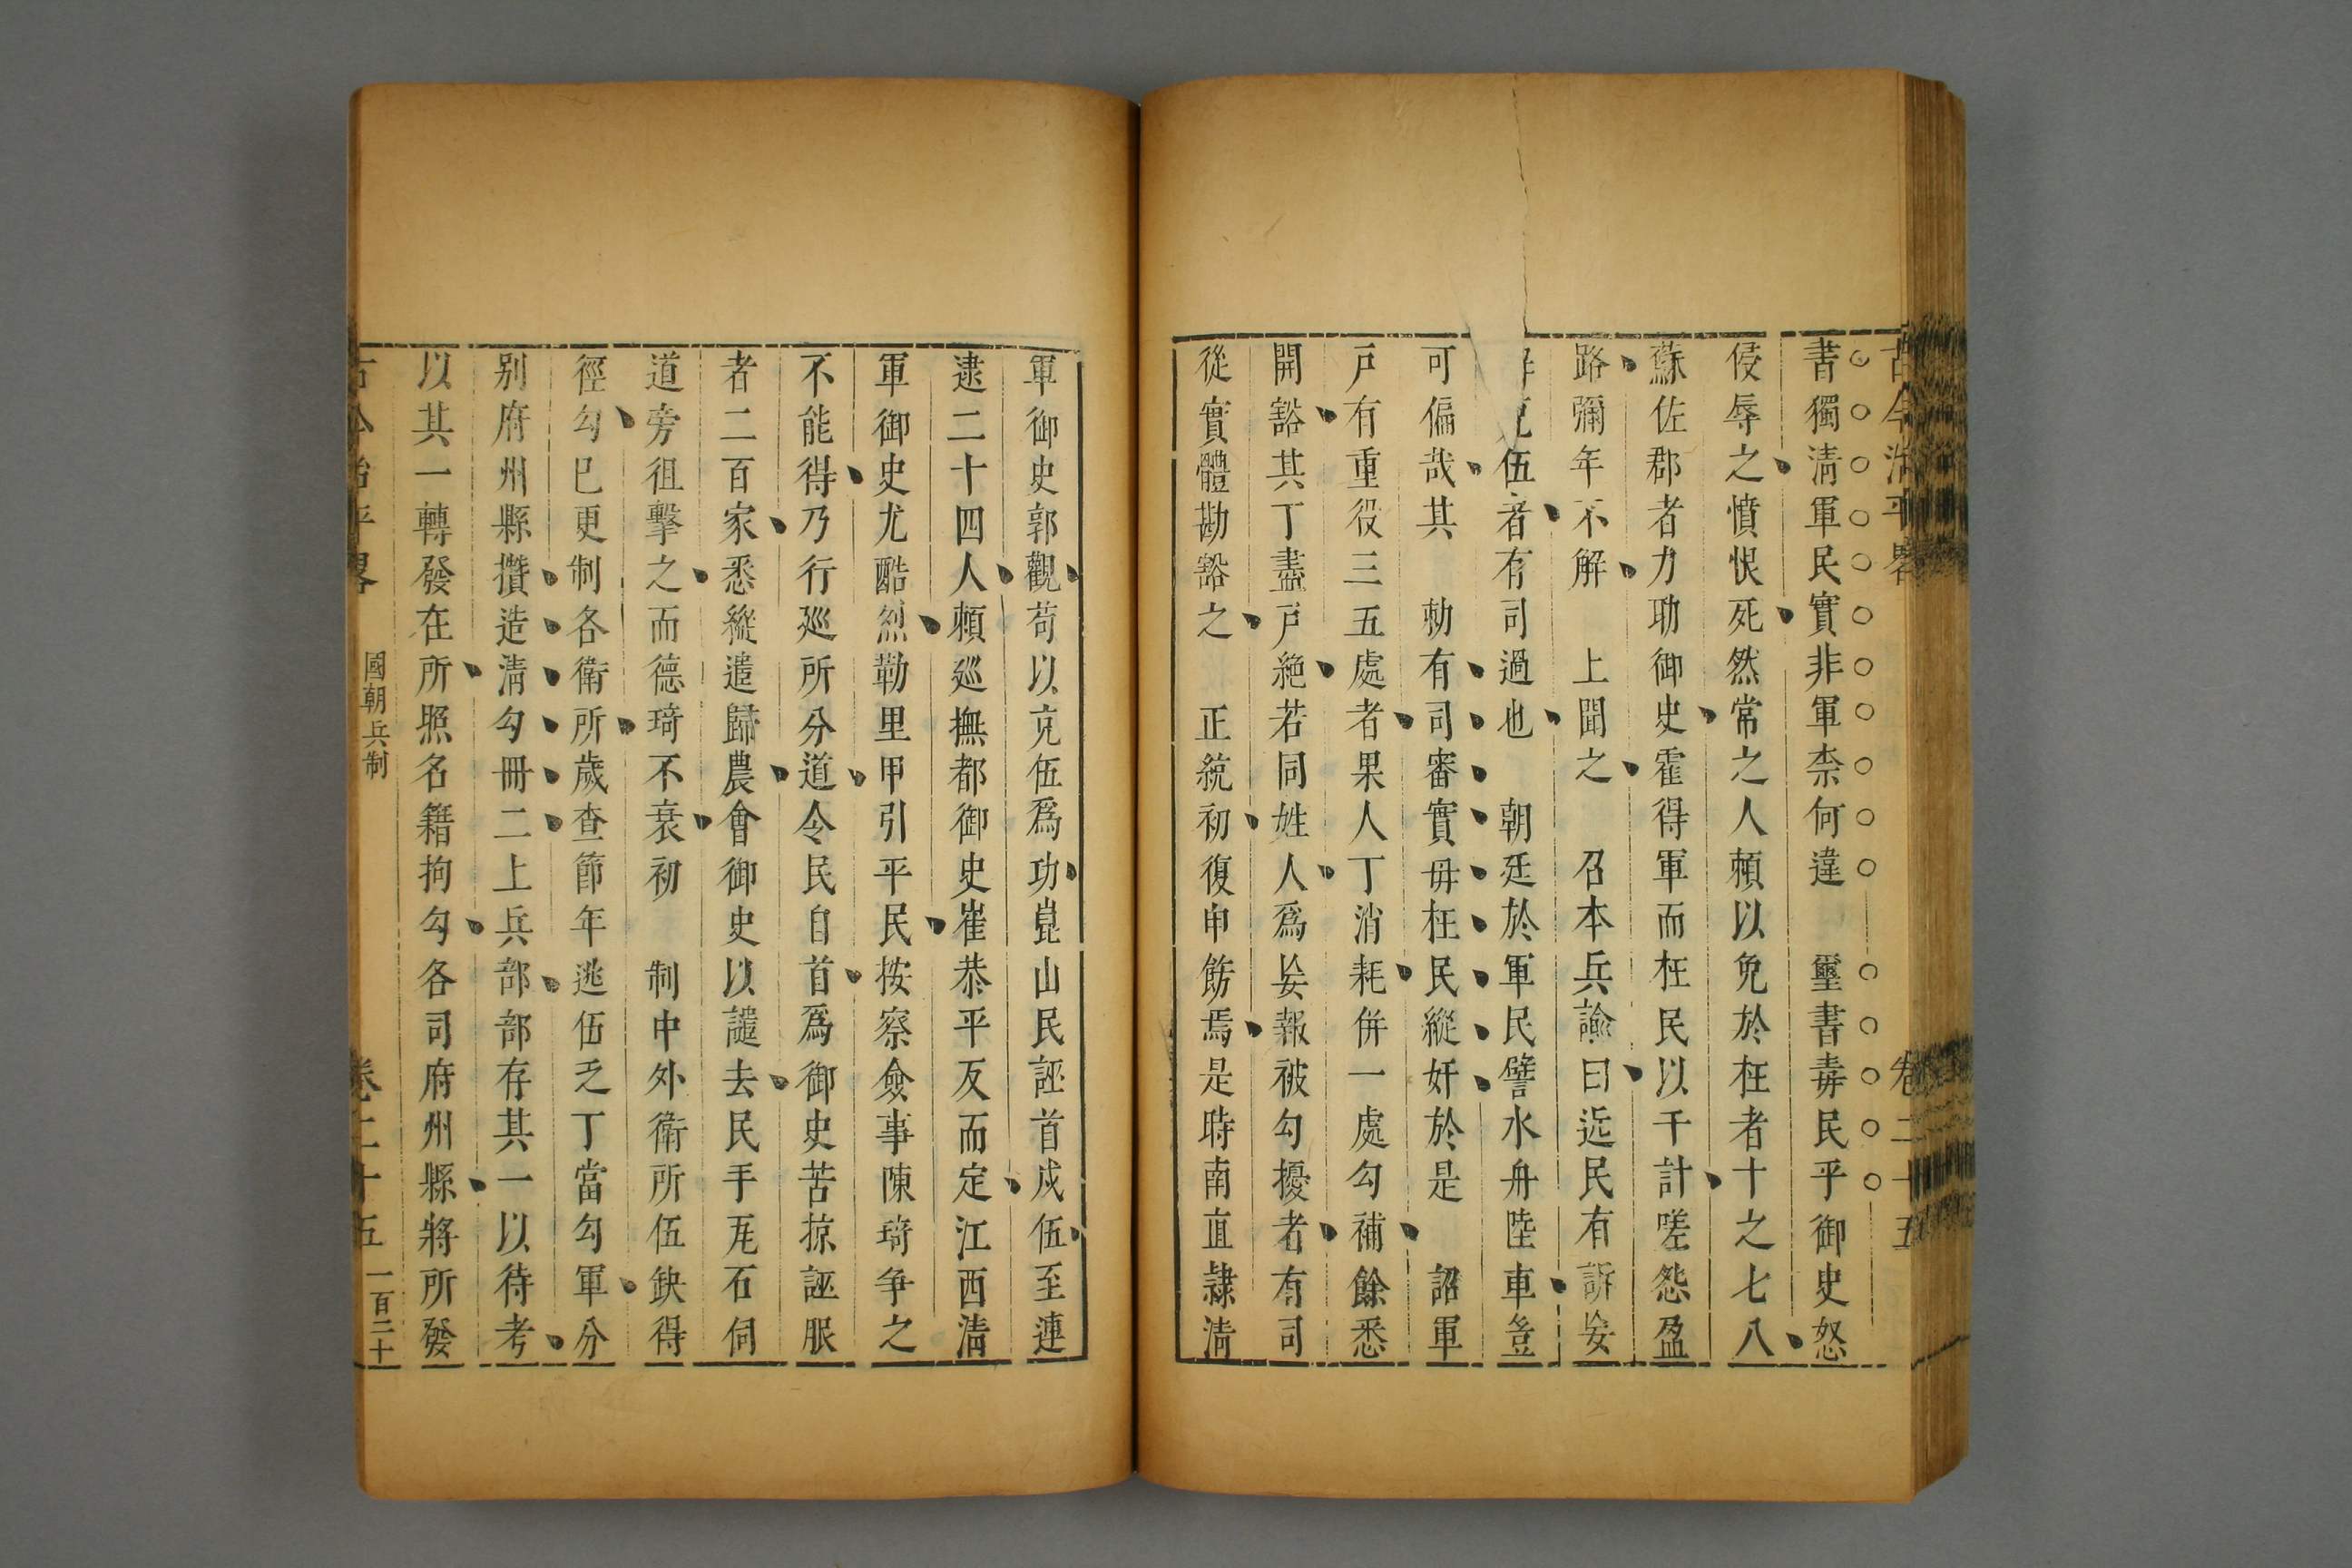 古今治平畧　卷二十五
書獨淸軍民實非軍柰何違　璽書毒民乎御史怒
侵辱之憤恨死然常之人頼以免於枉者十之七八
蘇佐郡者力助御史霍得軍而枉民以千計嗟怨盈
路彌年不解　上聞之　召本兵諭曰近民有訴妄
伍者有司過也　朝廷於軍民譬水舟陸車豈
可偏哉其　勑有司審實毋枉民縱奸於是　詔軍
戸有重役三五處者果人丁消耗併一處勾補餘悉
開豁其丁盡戸絶若同姓人爲妄報被勾擾者有司
從實體勘豁之　正統初復申飭焉是時南直隷淸
軍御史郭觀苟以克伍爲功崑山民誣首戍伍至連
逮二十四人頼巡撫都御史崔恭平反而定江西淸
軍御史尤酷烈勒里甲引平民按察僉事陳琦争之
不能得乃行巡所分道令民自首爲御史苦掠誣服
者二百家悉縱遣歸農會御史以譴去民手瓦石伺
道旁徂擊之而德琦不衰初　制中外衛所伍缺得
徑勾巳更制各衛所歲查節年逃伍乏丁當勾軍分
别府州縣攢造淸勾冊二上兵部部存其一以待考
以其一轉發在所照名籍拘勾各司府州縣將所發
古今治平畧　國朝兵制　卷二十五　一百二十